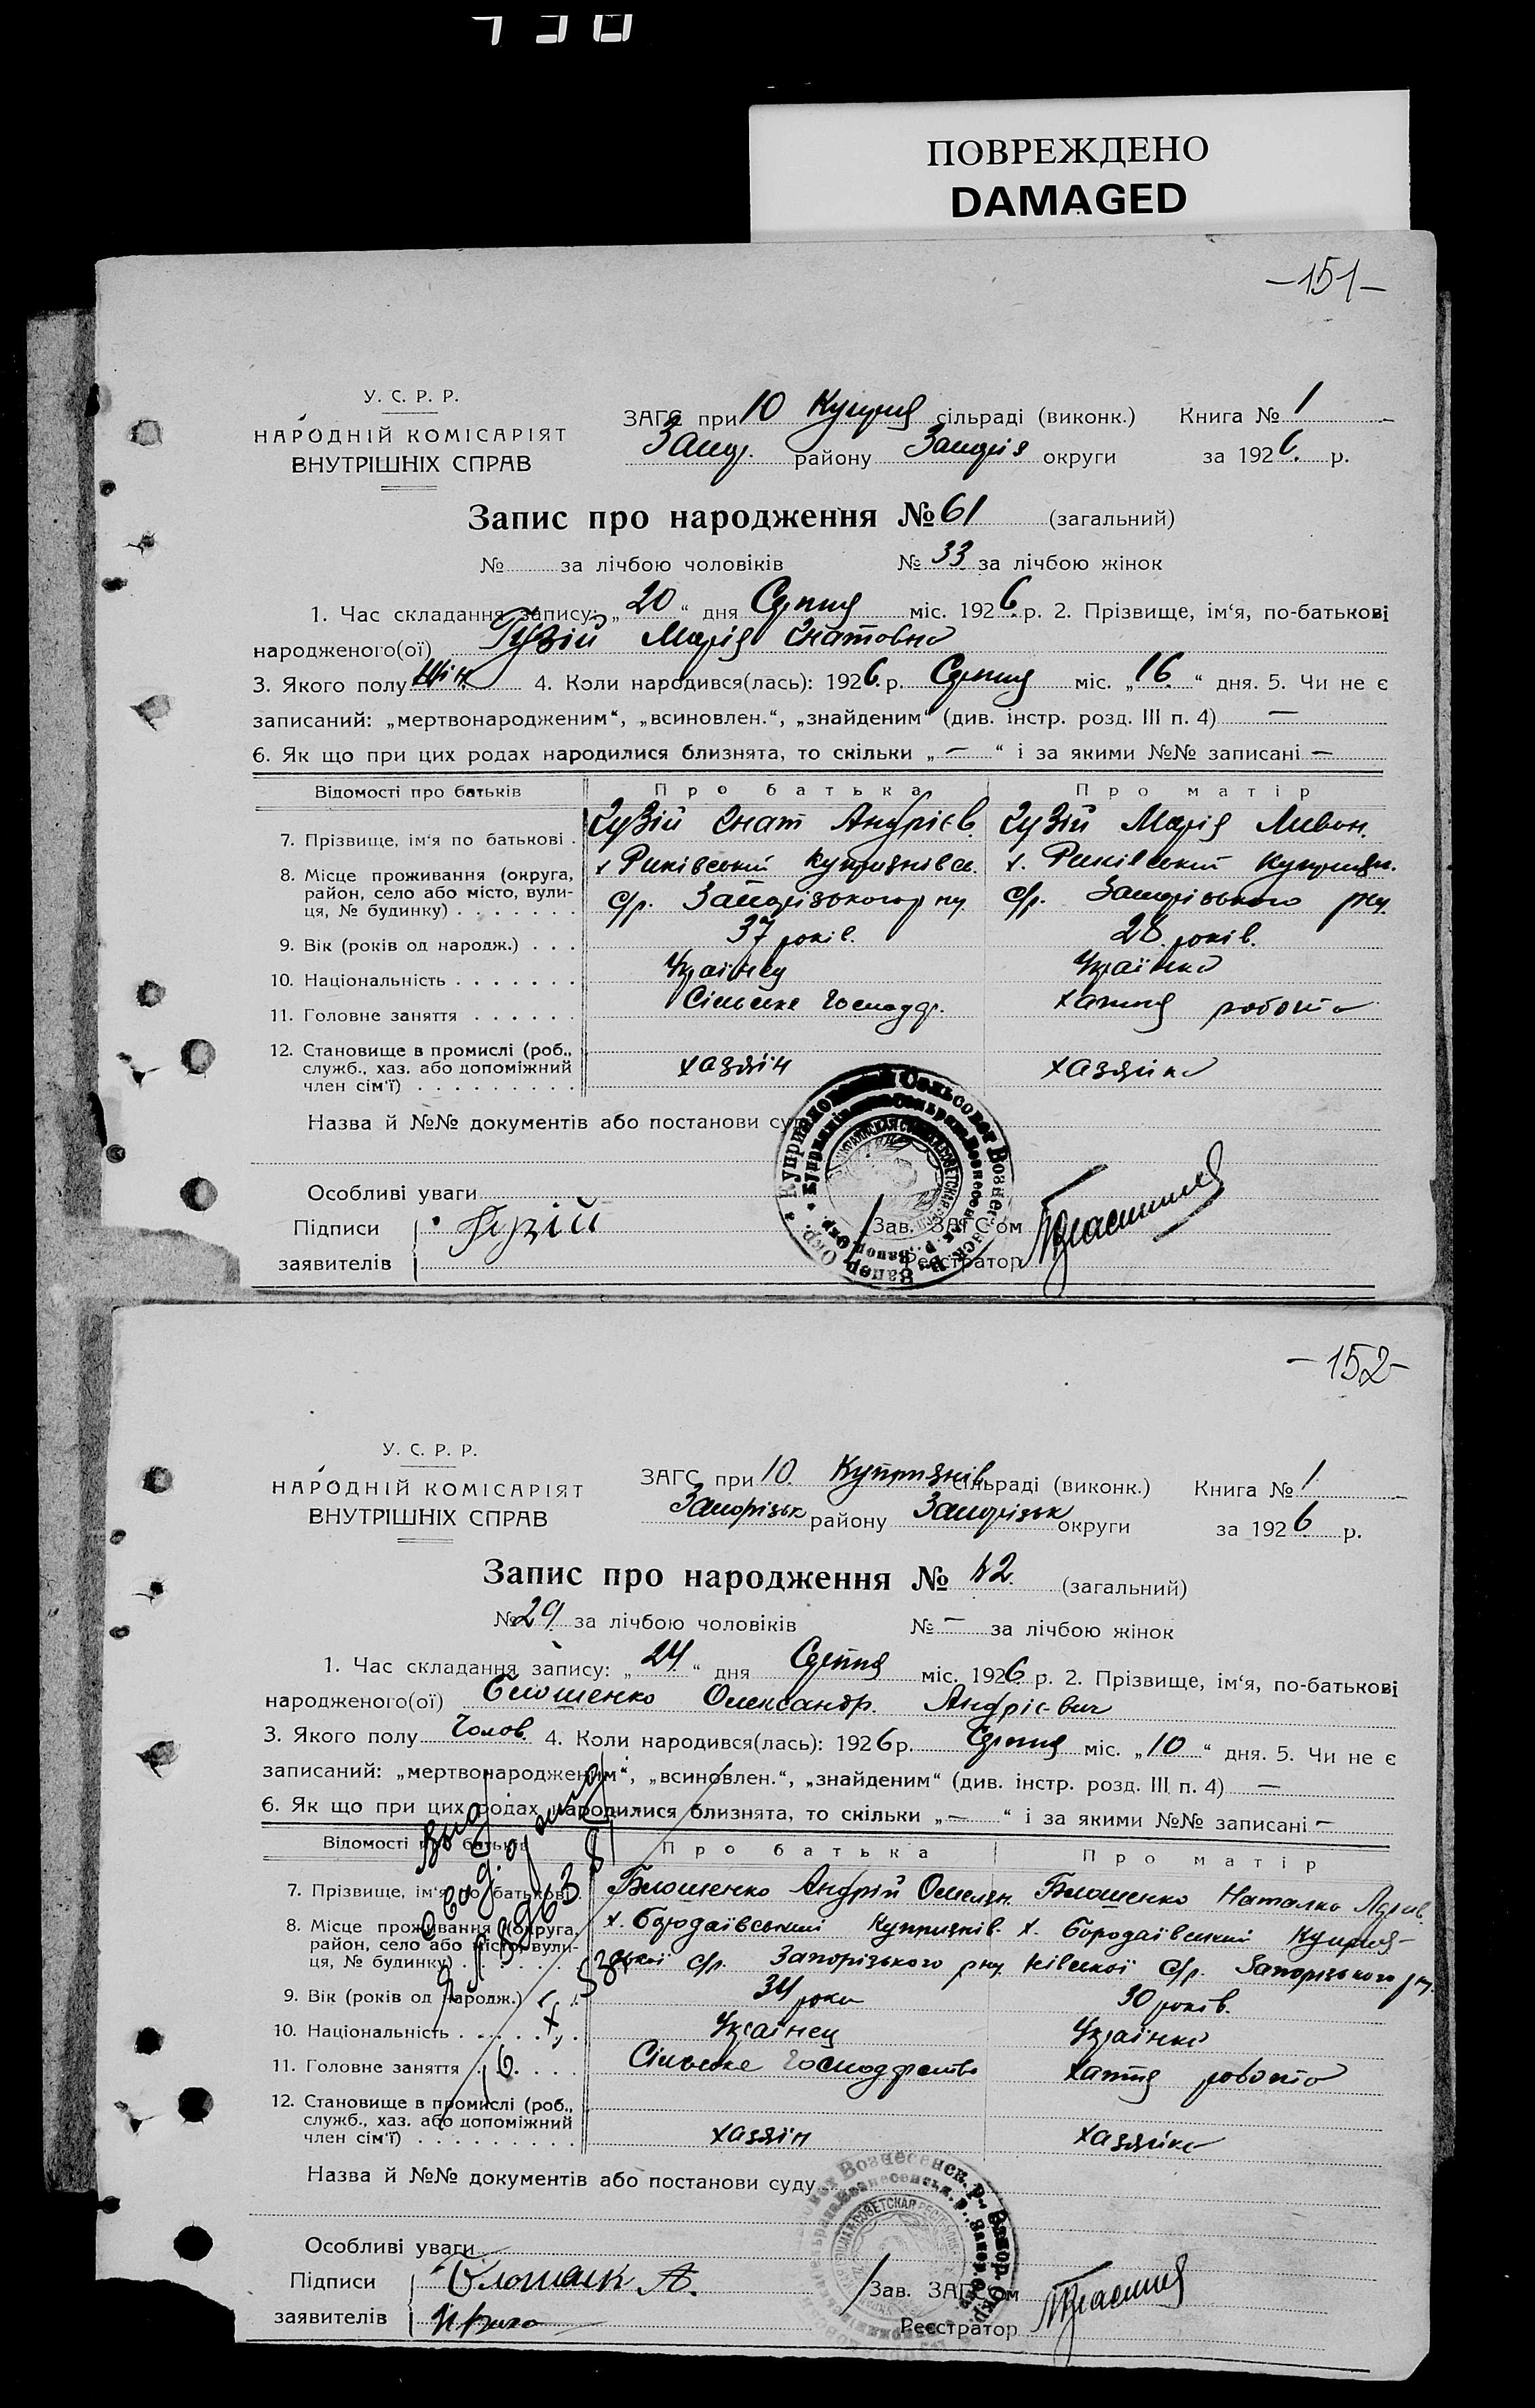 ПОВРЕЖДЕНО
DAMAGED
-151-
У. С. Р. Р.
НАРОДНІЙ КОМІСАРІЯТ
ВНУТРІШНІХ СПРАВ
ЗАГС при 10 сільраді (виконк.) Книга № 1
району округи за 1926 р.
Запис про народження № 61 (загальний)
№ за лічбою чоловіків № 33 за лічбою жінок
1. Час складання запису: „20“ дня Серпня міс. 1926 р. 2. Прізвище, ім'я, по-батькові
народженого(ої) Гузій Марія Гнатовна
3. Якого полу Жін 4. Коли народився(лась): 1926 р. Серпня міс. „16“ дня. 5. Чи не є
записаний: „мертвонародженим“, „всиновлен.“, „знайденим“ (див. інстр. розд. III п. 4) —
6. Як що при цих родах народилися близнята, то скільки „—“ і за якими №№ записані —
Відомості про батьків Про батька Про матір
7. Прізвище, ім'я по батькові . Гузій Гнат Андрієв. Гузій Марія Ливон.
8. Місце проживання (округа,
район, село або місто, вули-
ця, № будинку) . . . . . . . с/р. Запорізького р-ну с/р. Запорізького р-ну
9. Вік (років од народж.) . . . 37 років. 28 років.
10. Національність . . . . . . . Українец Українка
11. Головне заняття . . . . . . Сільське Господар. хатня робота
12. Становище в промислі (роб.,
служб., хаз. або допоміжний
член сім'ї) . . . . . . . . . хазяїн хазяйка
Назва й №№ документів або постанови суду
Особливі уваги
Підписи Гузій Зав. ЗАГС'ом
заявителів Реєстратор
-152-
У. С. Р. Р.
НАРОДНІЙ КОМІСАРІЯТ
ВНУТРІШНІХ СПРАВ
ЗАГС при 10. Купріянів. сільраді (виконк.) Книга № 1
Запорізьк району Запорізьк округи за 1926 р.
Запис про народження № 42. (загальний)
№ 29 за лічбою чоловіків № — за лічбою жінок
1. Час складання запису: „24“ дня Серпня міс. 1926 р. 2. Прізвище, ім'я, по-батькові
народженого(ої) Олександр. Андрієвич
3. Якого полу Чолов. 4. Коли народився(лась): 1926 р. Серпня міс. „10“ дня. 5. Чи не є
записаний: „мертвонародженим“, „всиновлен.“, „знайденим“ (див. інстр. розд. III п. 4) —
6. Як що при цих родах народилися близнята, то скільки „—“ і за якими №№ записані —
Відомості про батьків Про батька Про матір
7. Прізвище, ім'я по батькові . Андрій Омелян. Наталка
8. Місце проживання (округа, х. Бородаївський Купріянів- х. Бородаївський Купрія-
район, село або місто, вули-
ця, № будинку) . . . . . . . с/р. Запорізького р-ну нівської с/р. Запорізького р-ну
9. Вік (років од народж.) 34 роки 30 років.
10. Національність . . . . . . . Українец Українка
11. Головне заняття . . . . . . Сільське Господарство хатня робота
12. Становище в промислі (роб.,
служб., хаз. або допоміжний
член сім'ї) . . . . . . . . . хазяїн хазяйка
Назва й №№ документів або постанови суду
Особливі уваги
Підписи Зав. ЗАГС'ом
заявителів Реєстратор